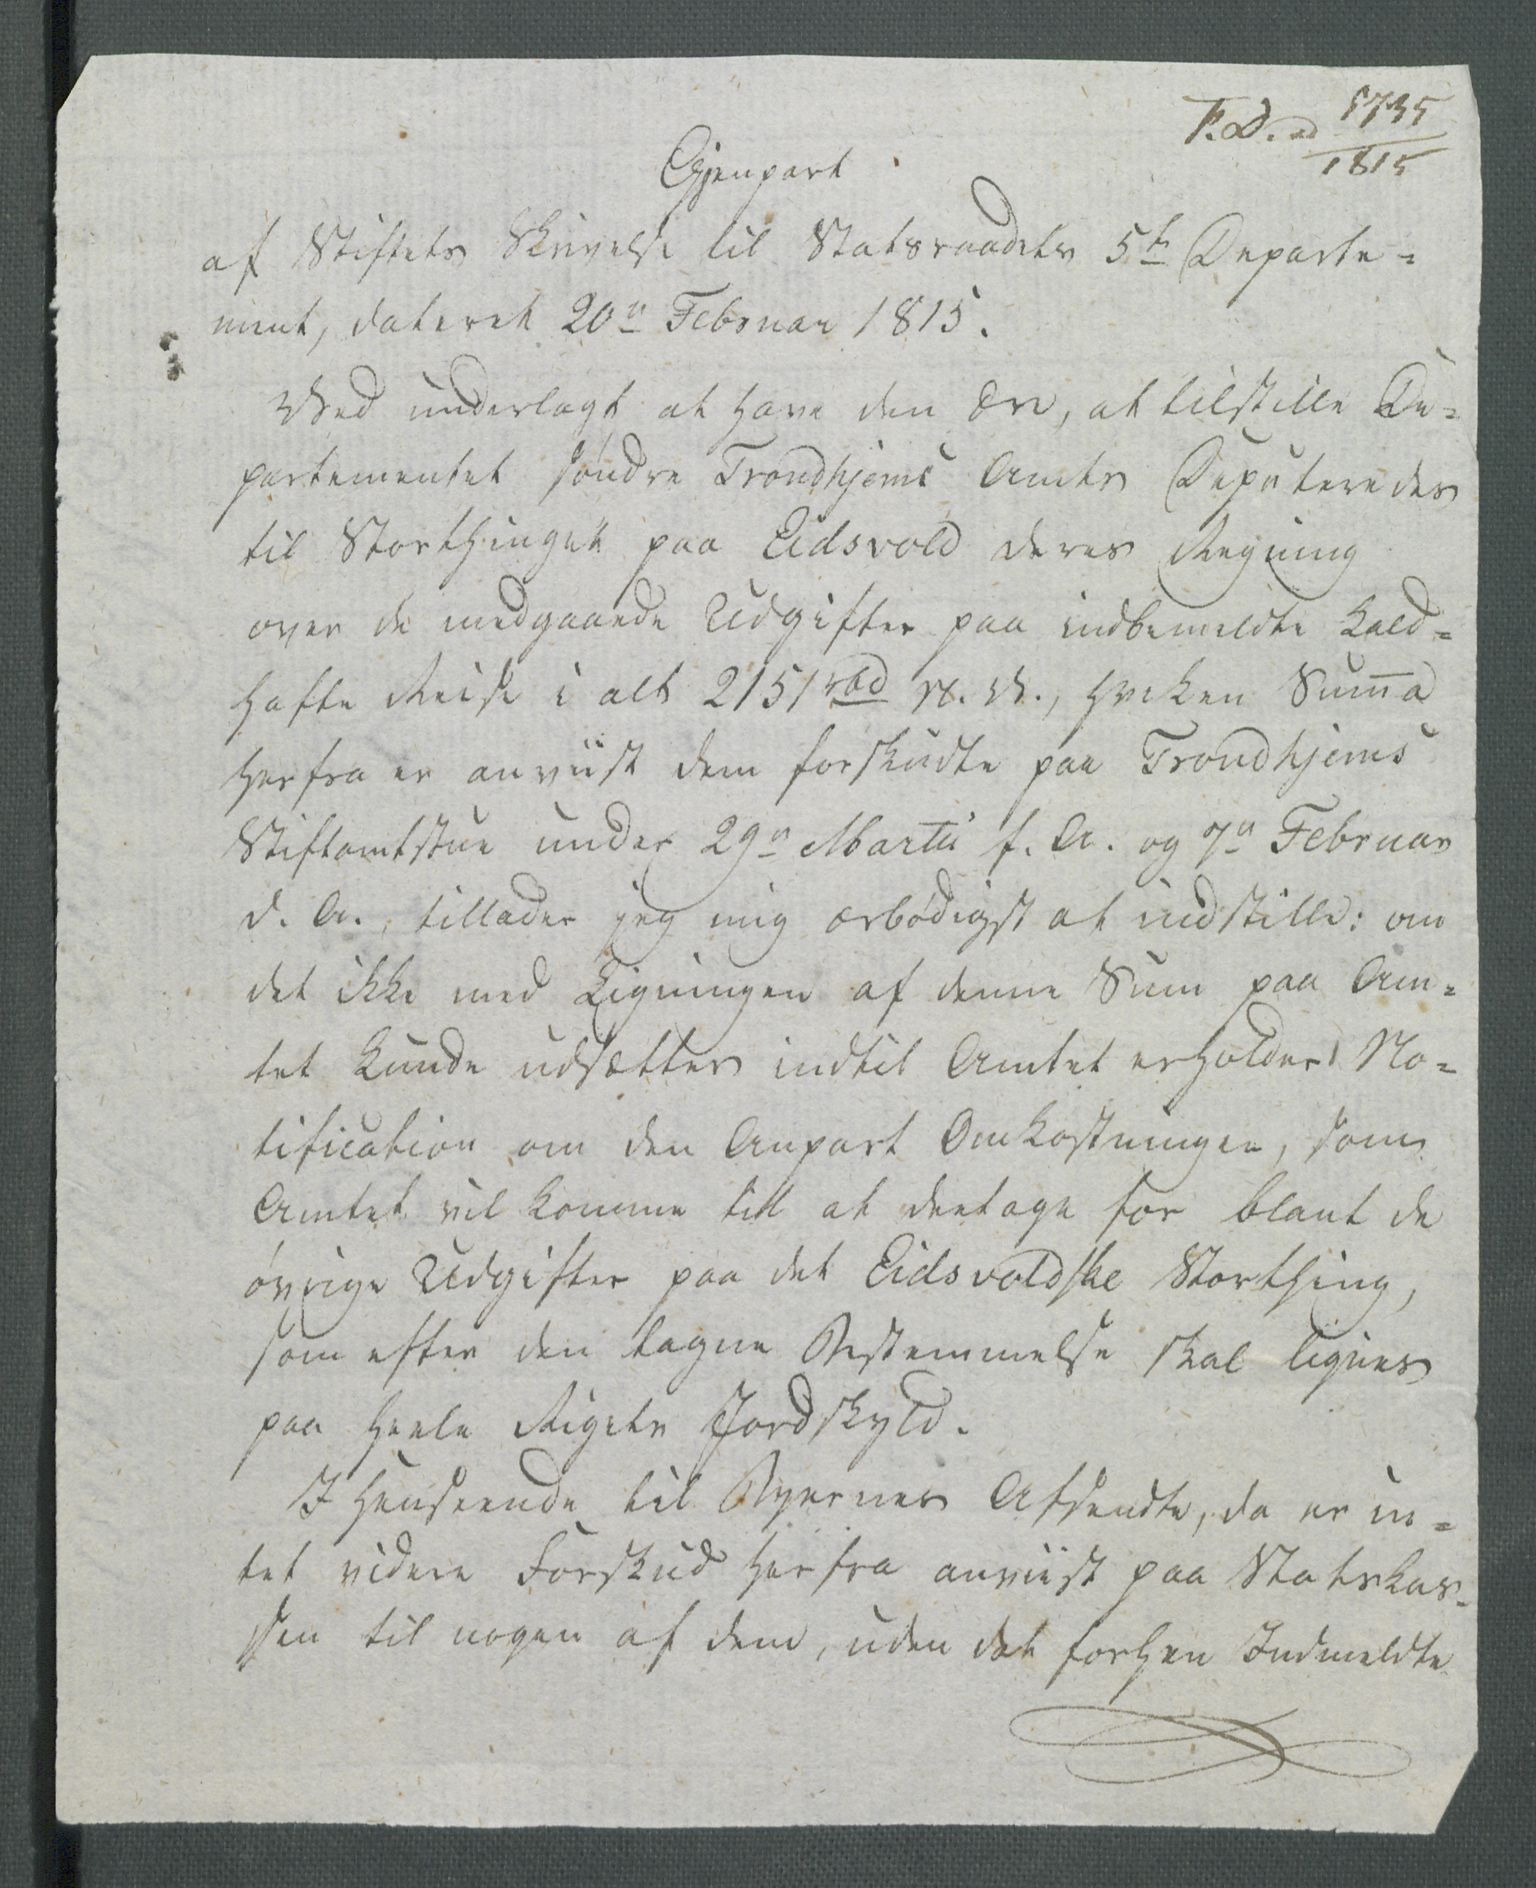 F.D. 1735
1815
Gjenpart
af Stiftets Skrivelse til Statsraadets 5te Departe=
ment, dateret 20n Februar 1815.
Ved underlagt at have den Ære, at tilstille De=
partementet søndre Trondhjems Amts Deputeredes
til Storthinget paa Eidsvold deres Regning
over de medgaaede Udgifter paa indbemeldte
hafte Reise i alt 2151 rbd N. V., hvilken Summa
herfra er anviist dem forskudte paa Trondhjems
Stiftamtstue under 29n Martii f. A. og 7n Februar
d. A., tillader jeg mig ærbødigst at indstille: om
det ikke med Ligningen af denne Sum paa Am=
tet kunde udsættes indtil Amtet erholder No=
tification om den Anpart Omkostninger, som
Amtet vil komme till at deeltage for blant de
øvrige Udgifter paa det Eidsvoldske Storthing,
som efter den tagne Bestemmelse skal lignes
paa heele Rigets Jordskyld.
I Henseende til Byernes Afsendte, da er in=
tet videre Forskud herfra anviist paa Statskas=
sen til nogen af dem, uden det forhen Indmeldte